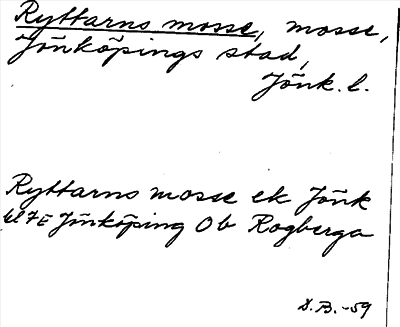 Ryttarns mosse, mosse,
Jönköpings stad,
Jönk. l.
Ryttarns mosse ek Jönk
bl 7E Jönköping Ob Rogberga
D.B. -59